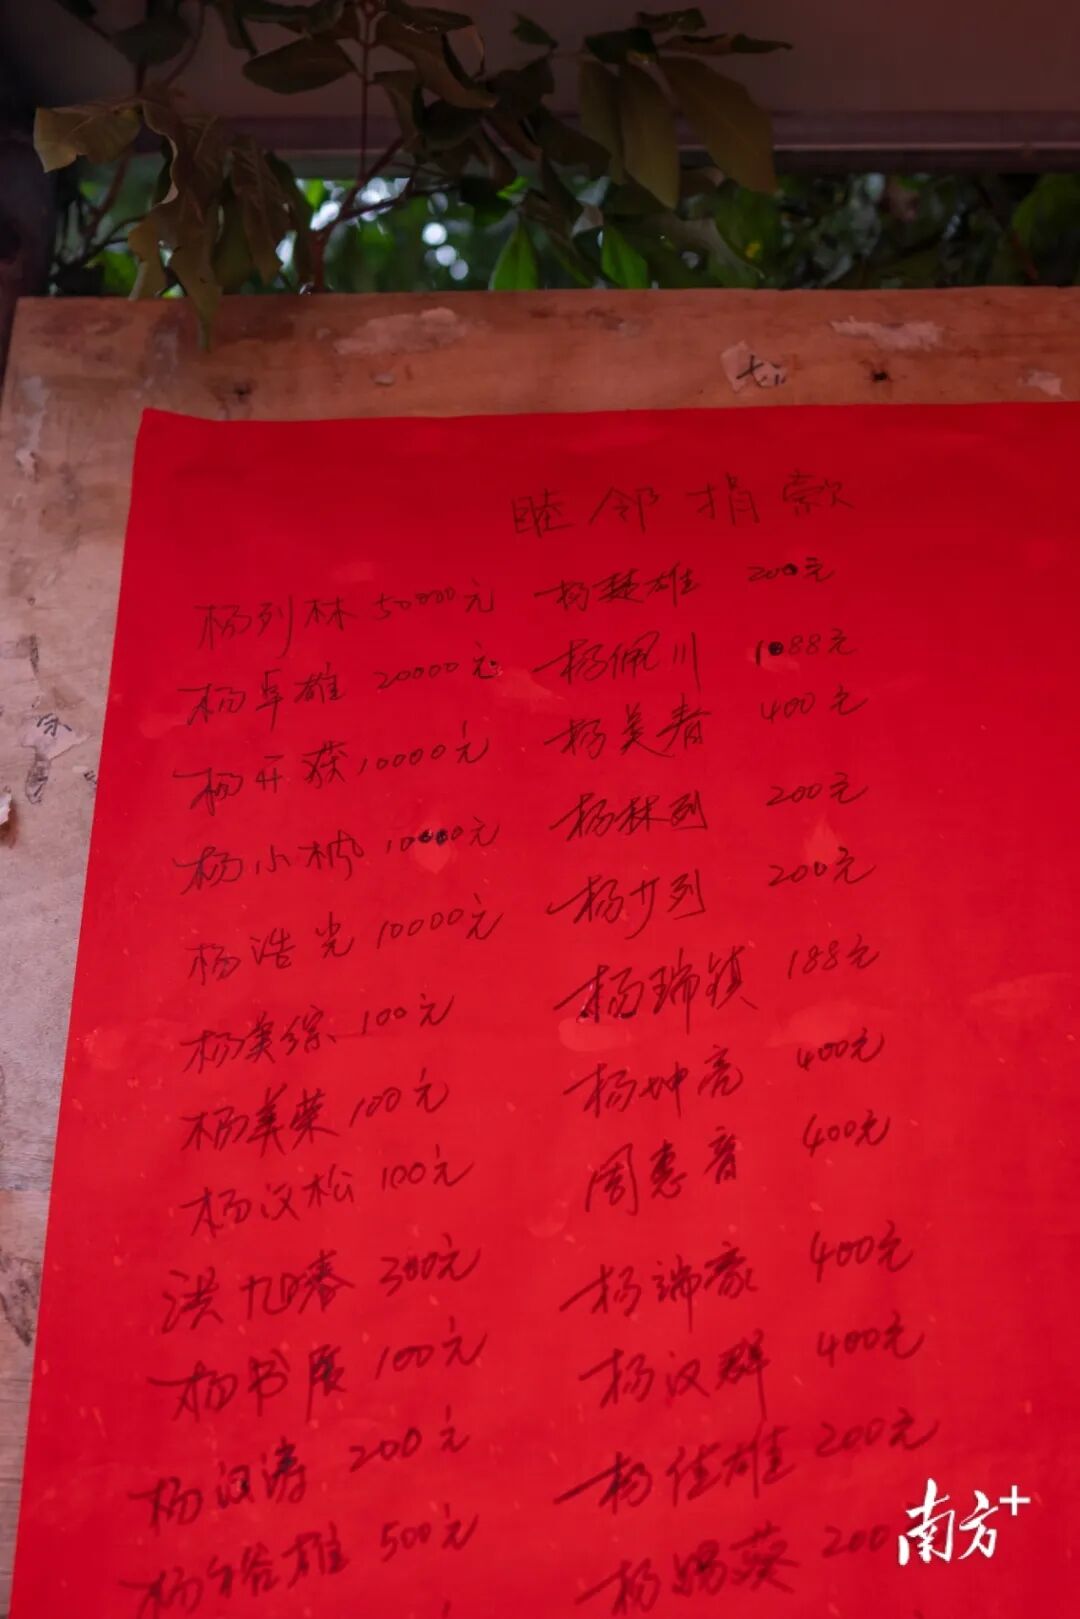 睦邻捐款
杨列林 50000元 杨楚雄 200元
杨卓雄 20000元 杨佩川 1088元
杨开 10000元 杨美春 400元
杨小枫 10000元 杨林列 200元
杨浩光 10000元 杨少列 200元
杨美综 100元 杨瑞镇 188元
杨美荣 100元 杨坤亮 400元
杨汉松 100元 周惠音 400元
洪旭春 300元 杨瑞豪 400元
杨书展 100元 杨汉群 400元
杨汉涛 200元 杨佳雄 200元
杨裕雄 500元 杨葵 200
南方+